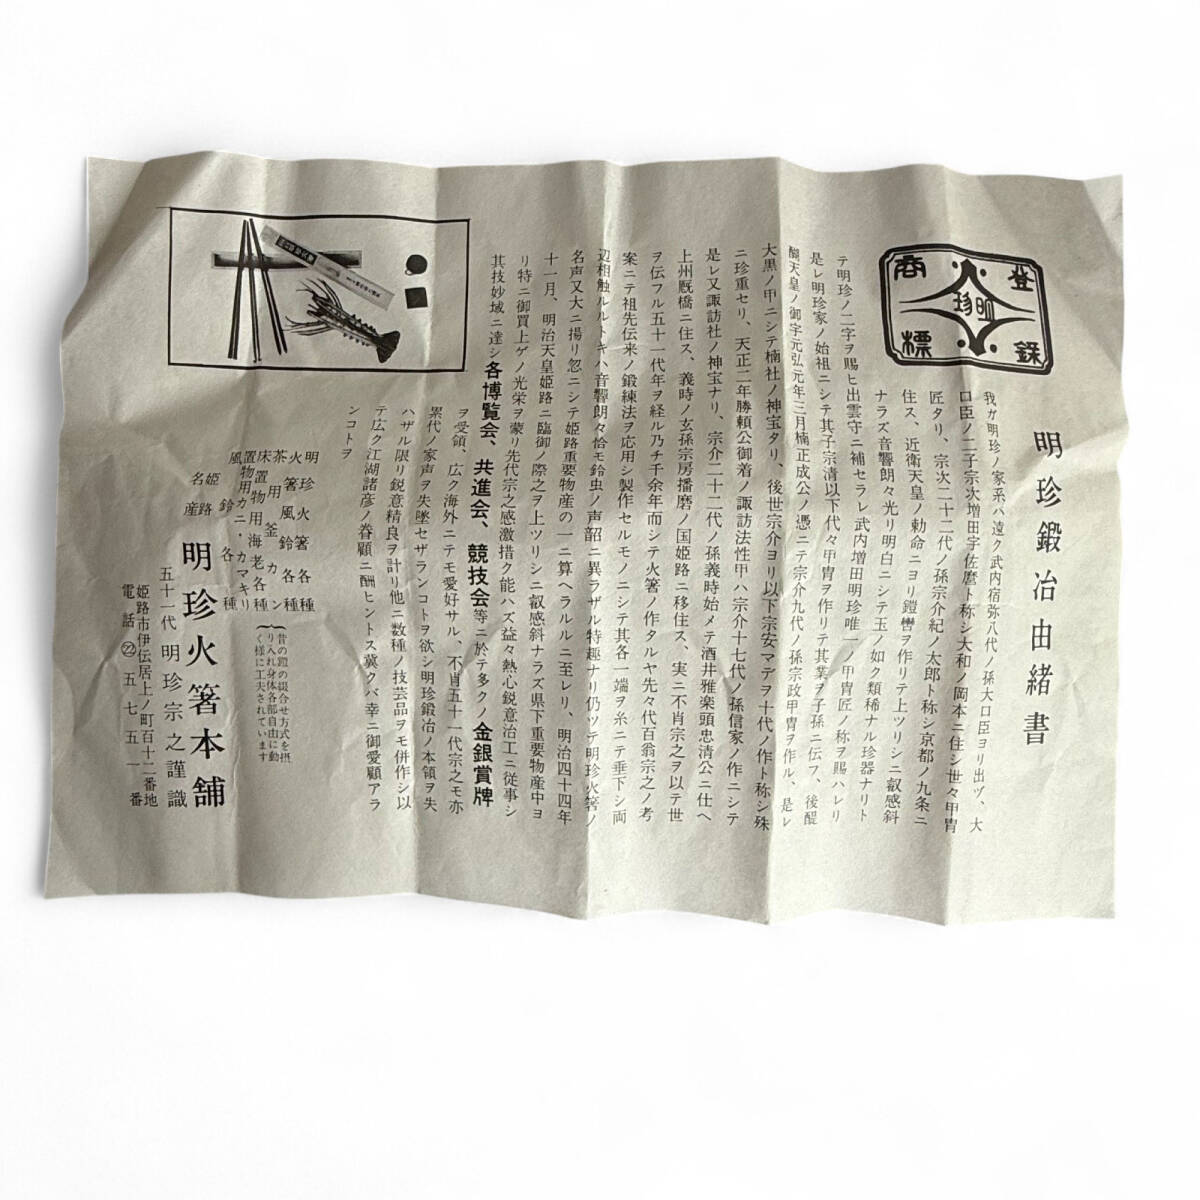 登録
商標
明珍
明珍鍛冶由緒書
我ガ明珍ノ家系ハ遠ク武内宿弥八代ノ孫大口臣ヨリ出ヅ、大
口臣ノ二子宗次増田字佐麿ト称シ大和ノ岡本ニ住シ世々甲冑
匠タリ、宗次二十二代ノ孫宗介紀ノ太郎ト称シ京都ノ九条ニ
住ス、近衛天皇ノ勅命ニヨリ鎧轡ヲ作リテ上ツリシニ叡感斜
ナラズ音響朗々光リ明白ニシテ玉ノ如ク類稀ナル珍器ナリト
テ明珍ノ二字ヲ賜ヒ出雲守ニ補セラレ武内増田明珍唯一ノ甲冑匠ノ称ヲ賜ハレリ
是レ明珍家ノ始祖ニシテ其子宗清以下代々甲冑ヲ作リテ其業ヲ子孫ニ伝フ、後醍
醐天皇ノ御字元弘元年三月楠正成公ノ憑ニテ宗介九代ノ孫宗政甲冑ヲ作ル、是レ
大黒ノ甲ニシテ楠社ノ神宝タリ、後世宗介ヨリ以下宗安マデヲ十代ノ作ト称シ殊
ニ珍重セリ、天正二年勝頼公御着ノ諏訪法性甲ハ宗介十七代ノ孫信家ノ作ニシテ
是レ又諏訪社ノ神宝ナリ、宗介二十二代ノ孫義時始メテ酒井雅楽頭忠清公ニ仕ヘ
上州厩橋ニ住ス、義時ノ玄孫宗房播磨ノ国姫路ニ移住ス、実ニ不肖宗之ヲ以テ世
ヲ伝フル五十一代年ヲ経ル乃チ千余年而シテ火箸ノ作タルヤ先々代百翁宗之ノ考
案ニテ祖先伝来ノ鍛練法ヲ応用シ製作セルモノニシテ其各一端ヲ糸ニテ垂下シ両
辺相触ルルトキハ音響朗々恰モ鈴虫ノ声韶ニ異ラザル特趣ナリ仍ツテ明珍火箸ノ
名声又大ニ揚リ忽ニシテ姫路重要物産の一ニ算ヘラルルニ至レリ、明治四十四年
十一月、明治天皇姫路ニ臨御ノ際之ヲ上ツリシニ叡感斜ナラズ県下重要物産中ヨ
リ特ニ御買上ゲノ光栄ヲ蒙リ先代宗之感激措ク能ハズ益々熱心鋭意治工ニ従事シ
其技妙域ニ達シ各博覧会、共進会、競技会等ニ於テ多クノ金銀賞牌
ヲ受領、広ク海外ニテモ愛好サル、不肖五十一代宗之モ亦
累代ノ家声ヲ失墜セザランコトヲ欲シ明珍鍛冶ノ本領ヲ失
ハザル限リ鋭意精良ヲ計リ他ニ数種ノ技芸品ヲモ併作シ以
テ広ク江湖諸彦ノ眷顧ニ酬ヒントス冀クバ幸ニ御愛顧アラ
ンコトヲ
明珍火箸各種
火箸風鈴各種
茶用釜カン
床置物用海老各種
置物用カニ・カマキリ
風鈴各種
昔の鎧の綴合せ方式を摂
り入れ身体各部自由に動
く様に工夫されています
姫路名産
明珍火箸本舗
五十一代明珍宗之謹識
姫路市伊伝居上ノ町百十二番地
電話㉒五七五一番